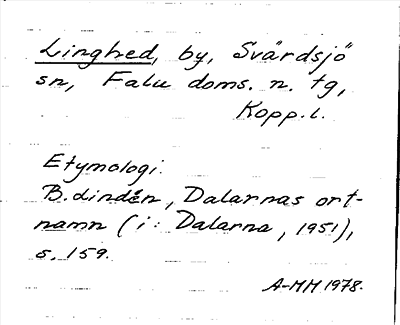 Linghed, by, Svärdsjö
sn, Falu doms. n. tg,
Kopp. l.
Etymologi.
B. Lindén, Dalarnas ort-
namn (i: Dalarna, 1951),
s. 159.
A-MM 1978.